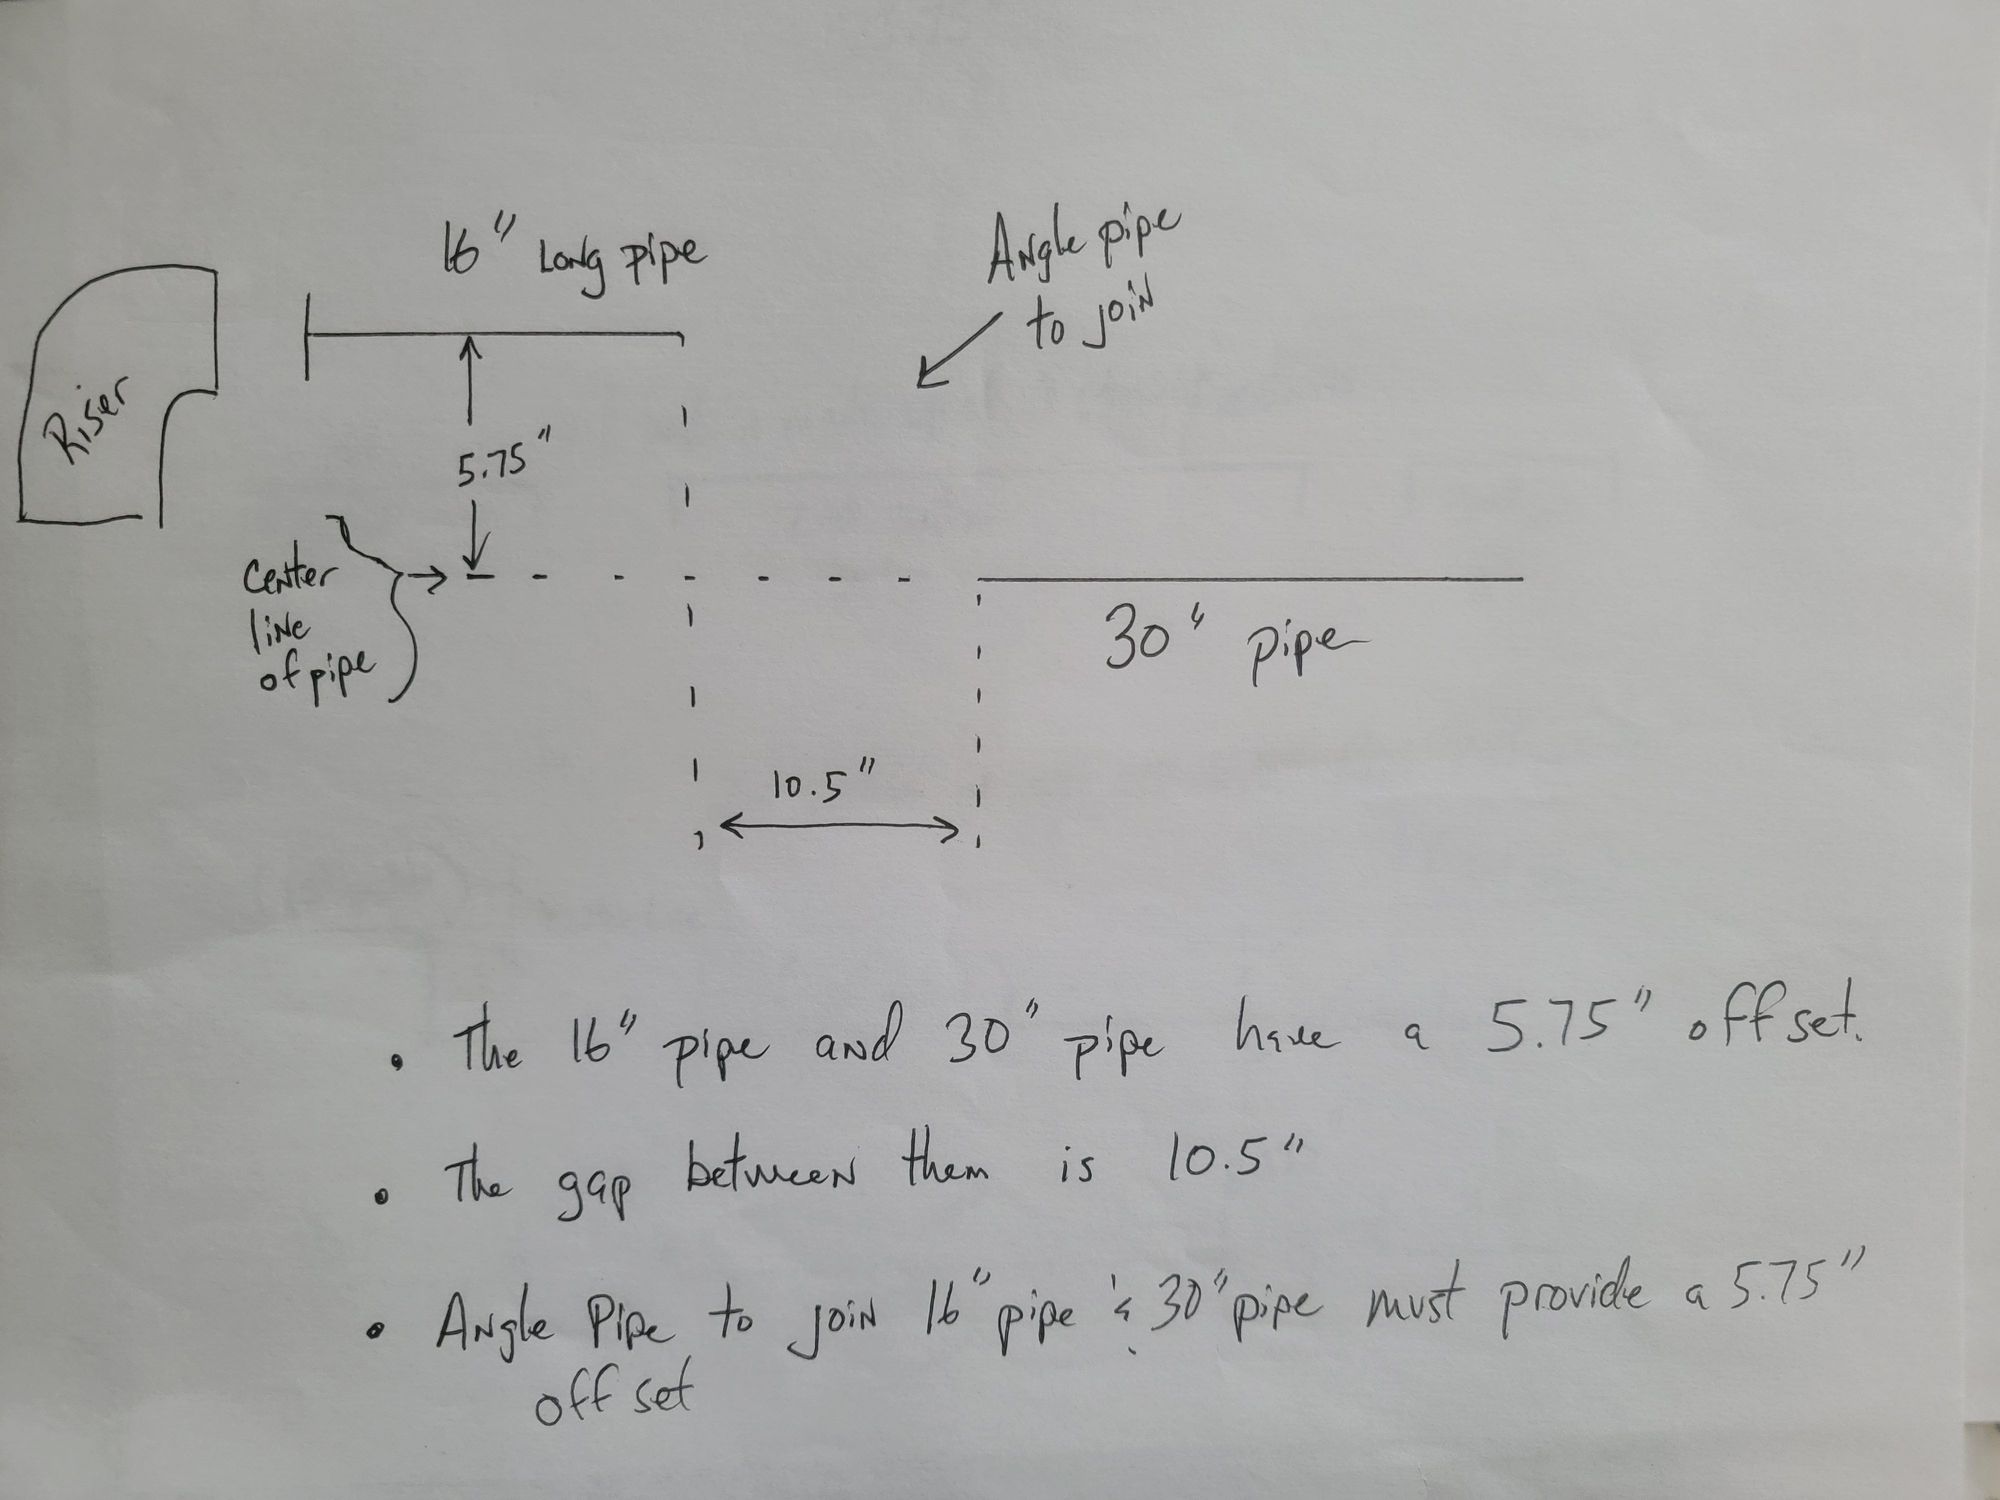 16" Long pipe
Angle pipe
to join
Riser
5.75"
Center
line
of pipe
30" pipe
10.5"
• The 16" pipe and 30" pipe have a 5.75" offset.
• The gap between them is 10.5"
• Angle Pipe to join 16" pipe & 30" pipe must provide a 5.75"
offset